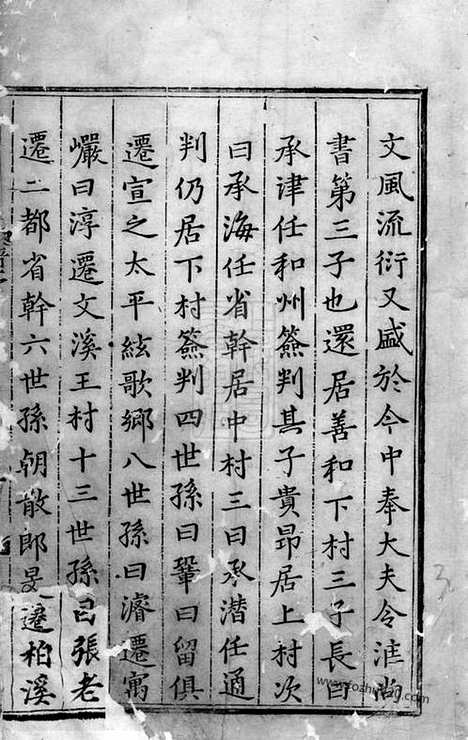 文風流衍又盛於今中奉大夫令淮尚
書第三子也還居善和下村三子長曰
承津任和州簽判其子貴昂居上村次
曰承海任省幹居中村三曰承潜任通
判仍居下村簽判四世孫曰鞏曰留俱
遷宣之太平絃歌鄉八世孫曰濬遷寓
巖曰淳遷文溪王村十三世孫曰張老
遷二都省幹六世孫朝散郎旻遷柏溪
3